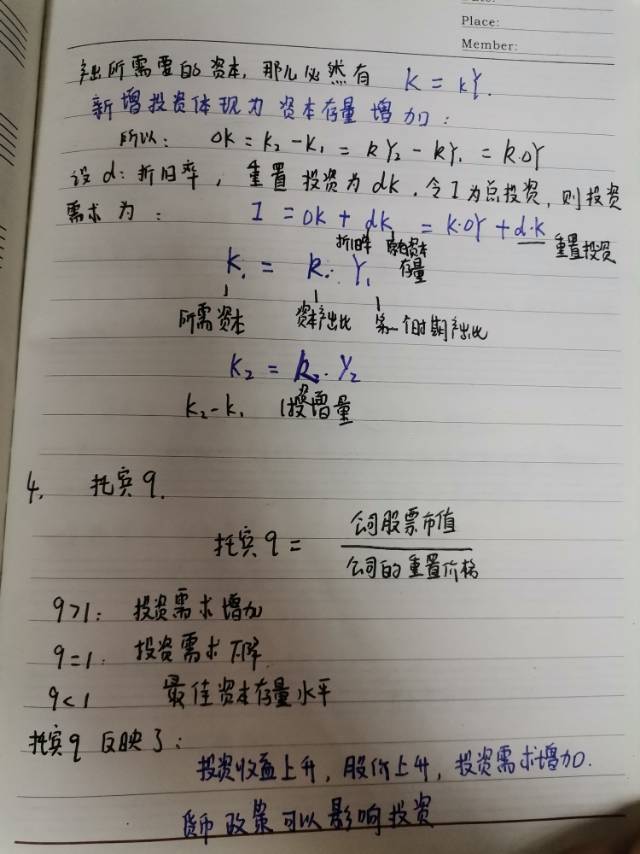 Place:
Member:
产出所需要的资本,那儿必然有 K = kY.
新增投资体现为 资本存量 增加:
所以: △K = K₂ - K₁ = kY₂ - kY₁ = k.△Y
设 d: 折旧率, 重置 投资为 dK. 令 I 为总投资, 则投资
需求为: I = △K + dK₁ = K·△Y + d·K 重置投资
折旧率 资本
存量
K₁ = k. Y₁
所需资本 资本产出比 第一个时期产出比
K₂ = k. Y₂
K₂-K₁ 投增量
4. 托宾q.
托宾q = 公司股票市值
公司的重置价格
q>1: 投资需求增加
q=1. 投资需求下降
q<1 最佳资本存量水平
托宾q 反映了:
投资收益上升, 股价上升, 投资需求增加.
货币政策可以影响投资